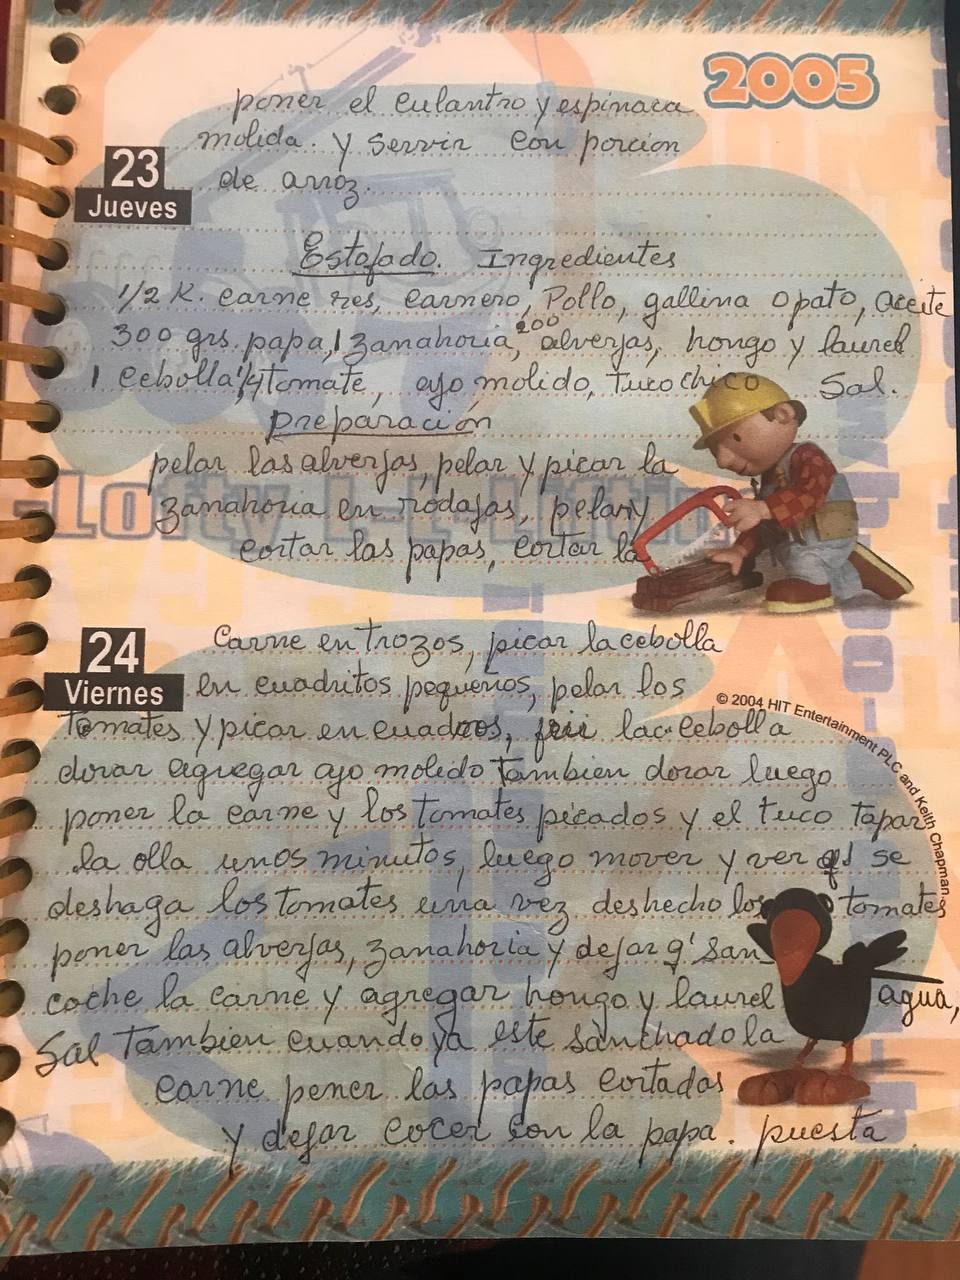 2005
poner el culantro y espinaca
molida. y servir con porcion
23
Jueves
de arroz.
Estofado. Ingredientes
1/2 K. carne res, carnero, Pollo, gallina o pato, aceite
300 grs. papa, 1 zanahoria, 200 alverjas, hongo y laurel
1 cebolla 1/4 tomate, ajo molido, tuco chico Sal.
preparación
pelar las alverjas, pelar y picar la
zanahoria en rodajas, pelar y
cortar las papas, cortar la
24
Viernes
Carne en trozos, picar la cebolla
en cuadritos pequeños, pelar los
© 2004 HIT Entertainment PLC and Keith Chapman
tomates y picar en cuadros, freir la cebolla
dorar agregar ajo molido tambien dorar luego
poner la carne y los tomates picados y el tuco tapar
la olla unos minutos, luego mover y ver q' se
deshaga los tomates una vez deshecho los tomates
poner las alverjas, zanahoria y dejar q' san_
coche la carne y agregar hongo y laurel agua,
Sal tambien cuando ya este sanchado la
carne poner las papas cortadas
y dejar cocer con la papa. puesta